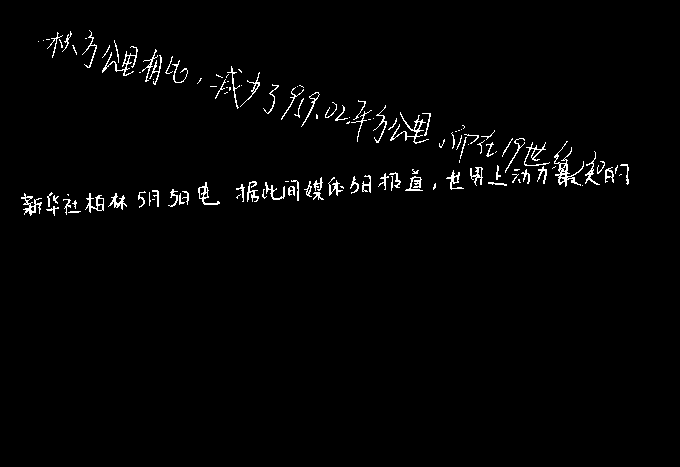 方公里相比，减少了959.02平方公里，而在19世纪
新华社柏林5月5日电 据此间媒体5日报道，世界上动力最的